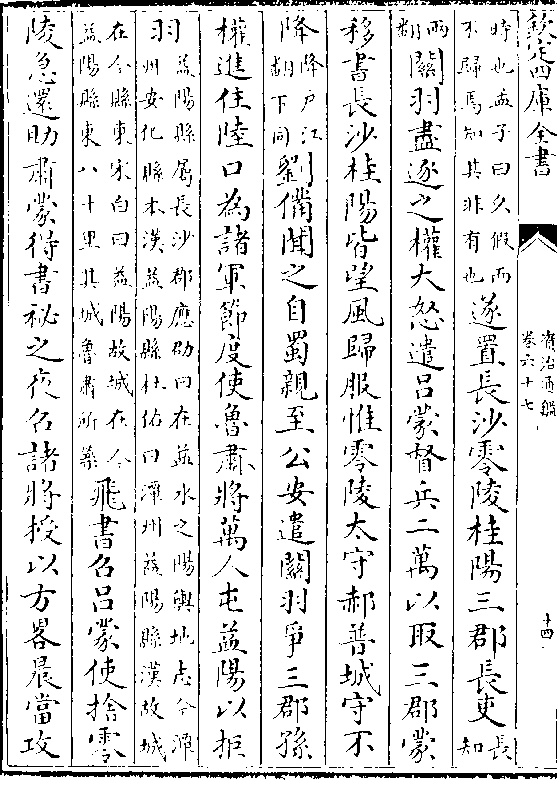 欽定四庫全書
資治通鑑
卷六十七
十四
時也孟子曰久假而
不歸焉知其非有也
遂置長沙零陵桂陽三郡長吏
長
知
兩
翻
關羽盡逐之權大怒遣呂蒙督兵二萬以取三郡蒙
移書長沙桂陽皆望風歸服惟零陵太守郝普城守不
降
降户江
翻下同
劉備聞之自蜀親至公安遣關羽爭三郡孫
權進住陸口為諸軍節度使魯肅將萬人屯益陽以拒
羽
益陽縣屬長沙郡應劭曰在益水之陽輿地志今潭
州安化縣本漢益陽縣杜佑曰潭州益陽縣漢故城
在今縣東宋白曰益陽故城在今
益陽縣東八十里其城魯肅所築
飛書召呂蒙使捨零
陵急還助肅蒙得書祕之夜召諸將授以方畧晨當攻